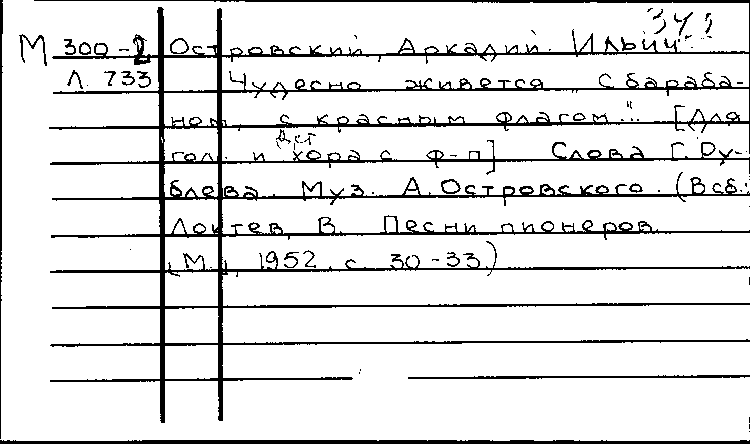 341
М 300-2 Островский, Аркадий Ильич.
Л 733 Чудесно живется „С бараба-
ном, с красным флагом..." [Для
дет
гол. и хора с ф-п] Слова Г. Ру-
блева. Муз. А. Островского. (В сб.:
Локтев, В. Песни пионеров
(М., 1952, с. 30-33.)